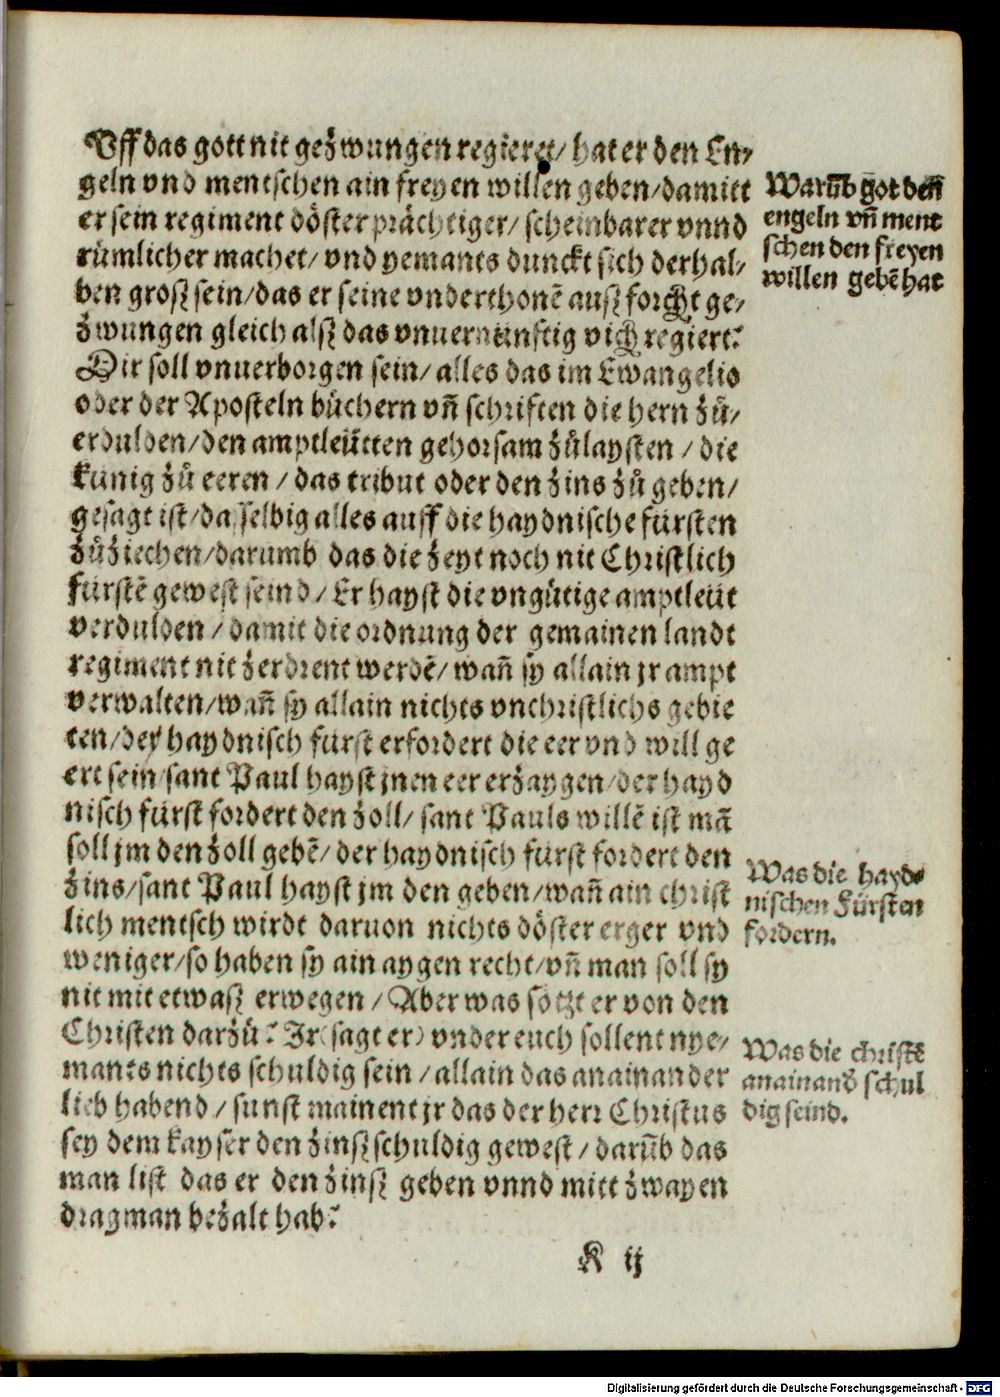 Vff das gott nit gezwungen regieret/ hat er den En-
geln vnd mentschen ain freyen willen geben/damitt
er sein regiment döster prächtiger/ scheinbarer vnnd
rümlicher machet/ vnd yemants dunckt sich derhal-
ben grosz sein/das er seine vnderthonē ausz forcht ge-
zwungen gleich alsz das vnuernünftig vich regiert?
Dir soll vnuerborgen sein/ alles das im Ewangelio
oder der Aposteln büchern vn̄ schriften die hern zů-
erdulden/den amptleütten gehorsam zůlaysten / die
künig zů eeren / das tribut oder den zins zů geben/
gesagt ist/dasselbig alles auff die haydnische fürsten
zůziechen/darumb das die zeyt noch nit Christlich
fürstē gewest seind/ Er hayst die vngütige amptleüt
verdulden / damit die ordnung der gemainen landt
regiment nit zerdrent werdē/ wan̄ sy allain jr ampt
verwalten/wan̄ sy allain nichts vnchristlichs gebie
ten/der haydnisch fürst erfordert die eer vnd will ge
ert sein/sant Paul hayst jnen eer erzaygen/der hayd
nisch fürst fordert den zoll/ sant Pauls willē ist mā
soll jm den zoll gebē/ der haydnisch fürst fordert den
zins/sant Paul hayst jm den geben/wan̄ ain christ
lich mentsch wirdt daruon nichts döster erger vnd
weniger/so haben sy ain aygen recht/vn̄ man soll sy
nit mit etwasz erwegen / Aber was sötzt er von den
Christen darzů? Ir(sagt er) vnder euch sollent nye-
mants nichts schuldig sein / allain das anainander
lieb habend / sunst mainent jr das der herr Christus
sey dem kayser den zinsz schuldig gewest / darūb das
man list das er den zinsz geben vnnd mitt zwayen
dragman bezalt hab?
K ij
Warūb got den̄
engeln vn̄ ment
schen den freyen
willen gebē hat
Was die hayd-
nischen Fürsten
fordern.
Was die christē
anainand schul
dig seind.
Digitalisierung gefördert durch die Deutsche Forschungsgemeinschaft - DFG